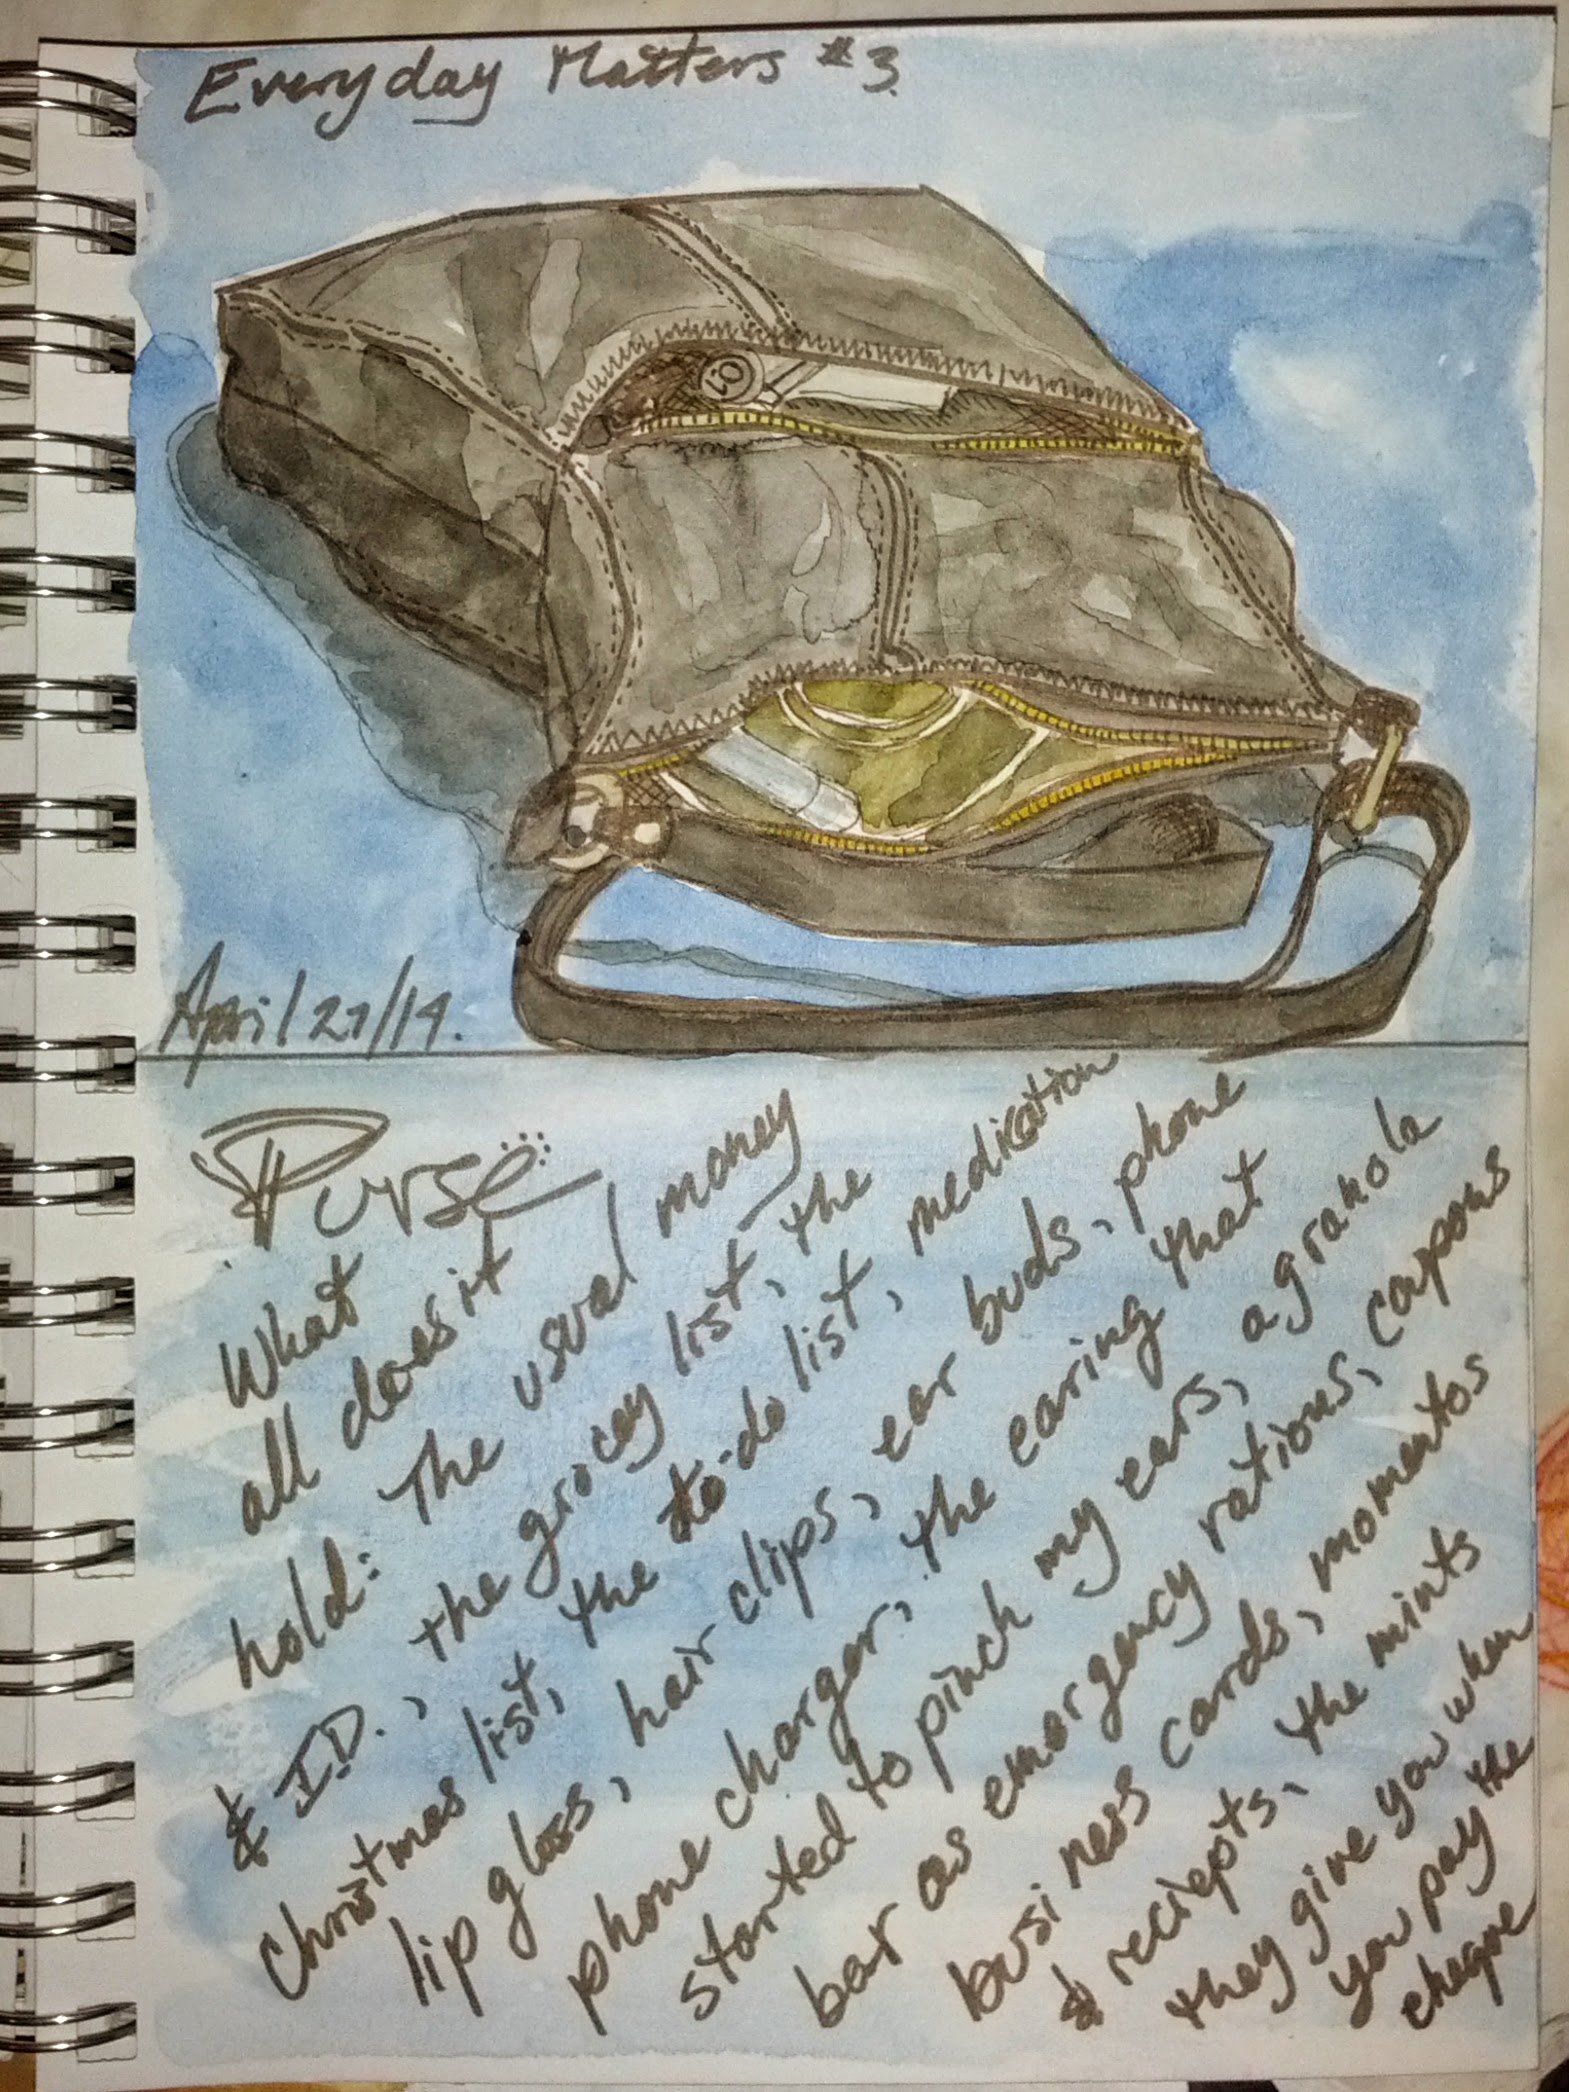 Everyday Matters #3.
April 27/14.
Purse
What
all does it
hold: The usual money
& I.D., the grocey list, the
Christmas list, the to-do list, medication
lip gloss, hair clips, ear buds, phone
phone charger, the earing that
started to pinch my ears, a granola
bar as emergency rations, cupons
business cards, momentos
& reciepts, the mints
they give you when
you pay the
cheque